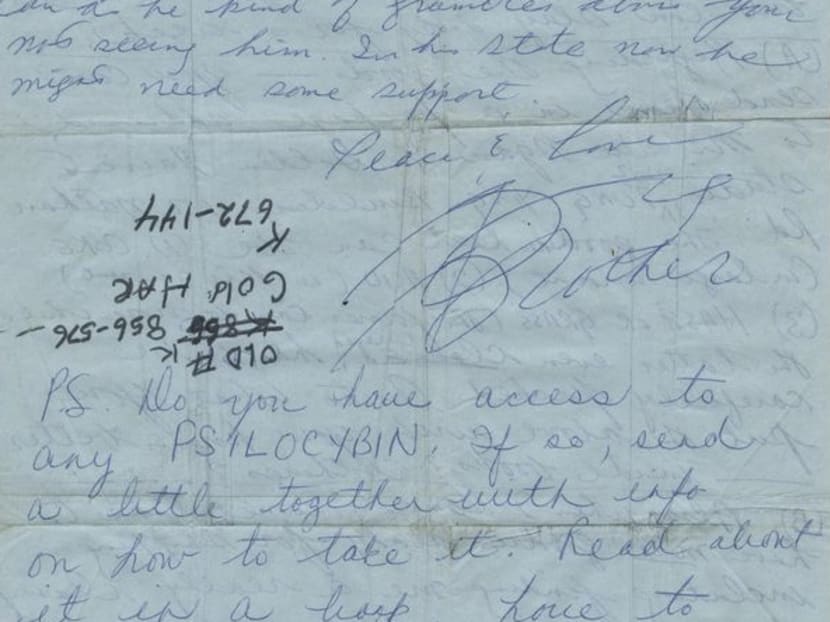 be kind of your
not seeing him. In his state now he
might need some support
Peace & Love
Brother
OLD # K
856-576 -
Gold HAR
K
672-144
PS. Do you have access to
any PSILOCYBIN. If so, send
a little together with info
on how to take it. Read about
it in a book. Love to